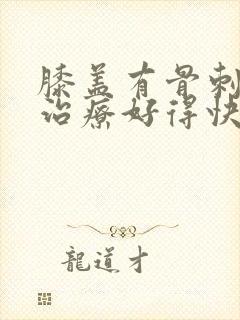 膝盖有骨刺
治疗好得快
龍道才